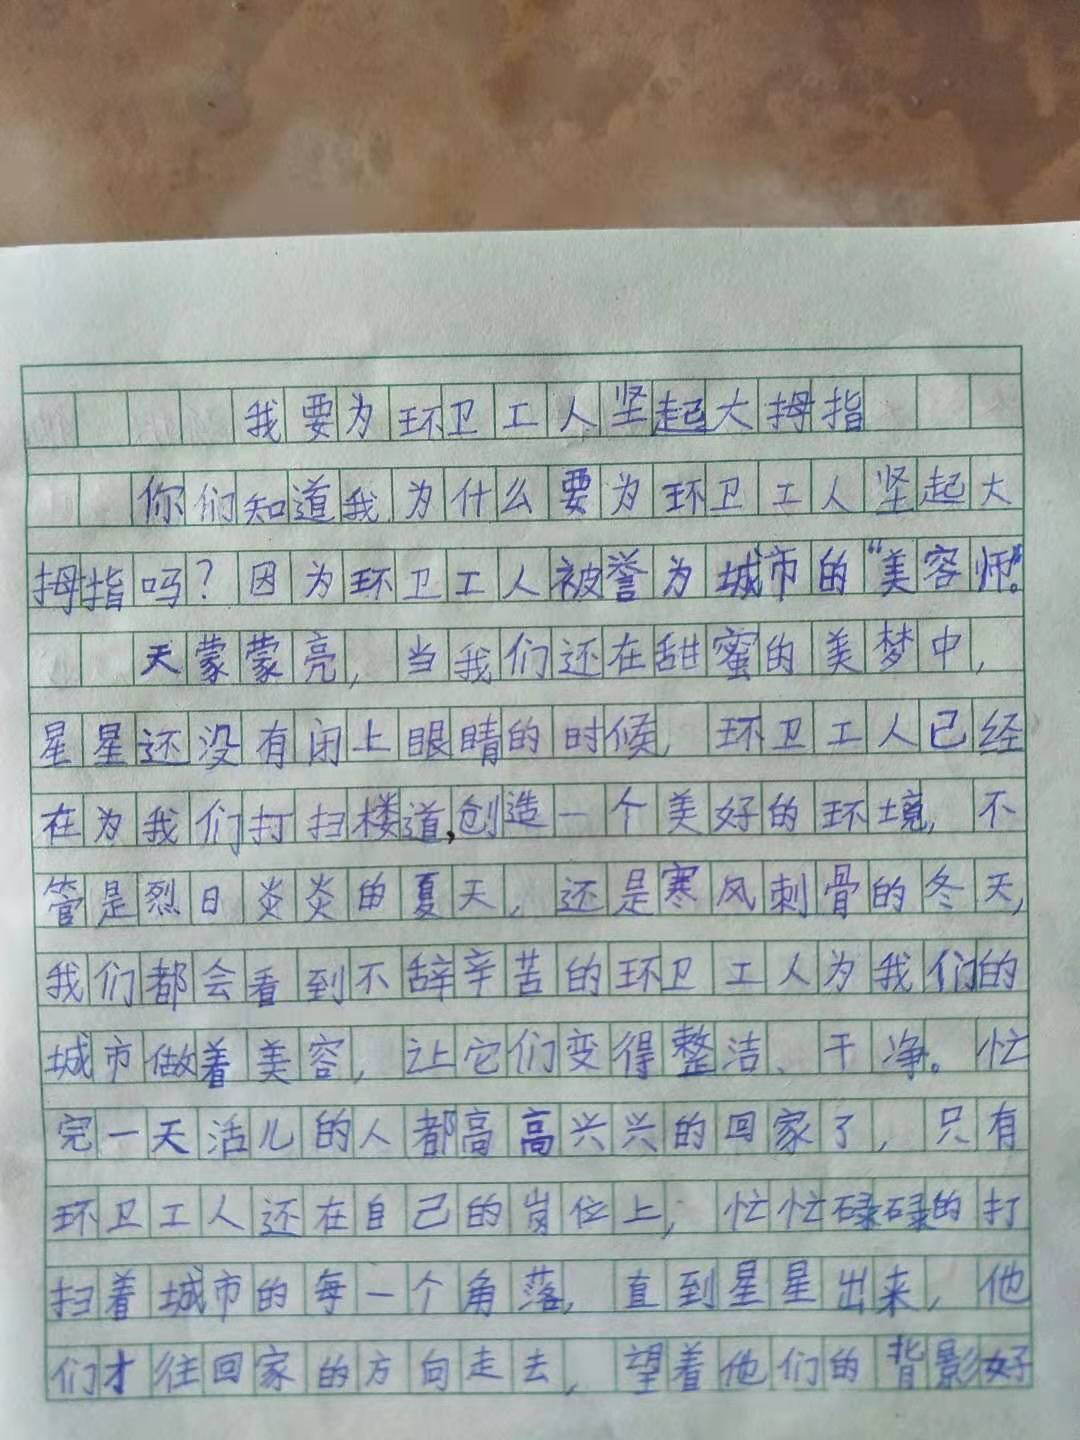 我要为环卫工人坚起大拇指
你们知道我为什么要为环卫工人坚起大
拇指吗？因为环卫工人被誉为城市的“美容师”。
天蒙蒙亮，当我们还在甜蜜的美梦中，
星星还没有闭上眼睛的时候，环卫工人已经
在为我们打扫楼道，创造一个美好的环境，不
管是烈日炎炎的夏天，还是寒风刺骨的冬天，
我们都会看到不辞辛苦的环卫工人为我们的
城市做着美容，让它们变得整洁、干净。忙
完一天活儿的人都高高兴兴的回家了，只有
环卫工人还在自己的岗位上，忙忙碌碌的打
扫着城市的每一个角落，直到星星出来，他
们才往回家的方向走去，望着他们的背影好